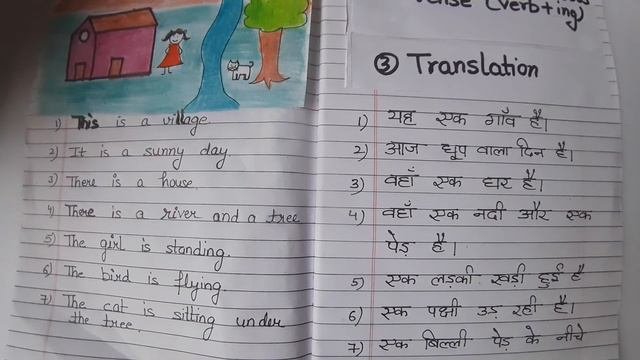 (verb+ing)
③ Translation
1) This is a village.
2) It is a sunny day.
3) There is a house.
4) There is a river and a tree
5) The girl is standing.
6) The bird is flying.
7) The cat is sitting under
the tree.
1) यह एक गाँव है।
2) आज धूप वाला दिन है।
3) वहाँ एक घर है।
4) वहाँ एक नदी और एक
पेड़ है।
5) एक लड़की खड़ी हुई है
6) एक पक्षी उड़ रही है।
7) एक बिल्ली पेड़ के नीचे